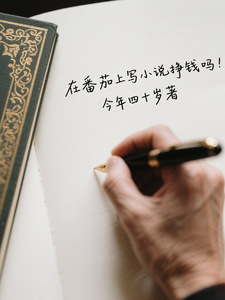 在番茄上写小说挣钱吗!
今年四十岁著